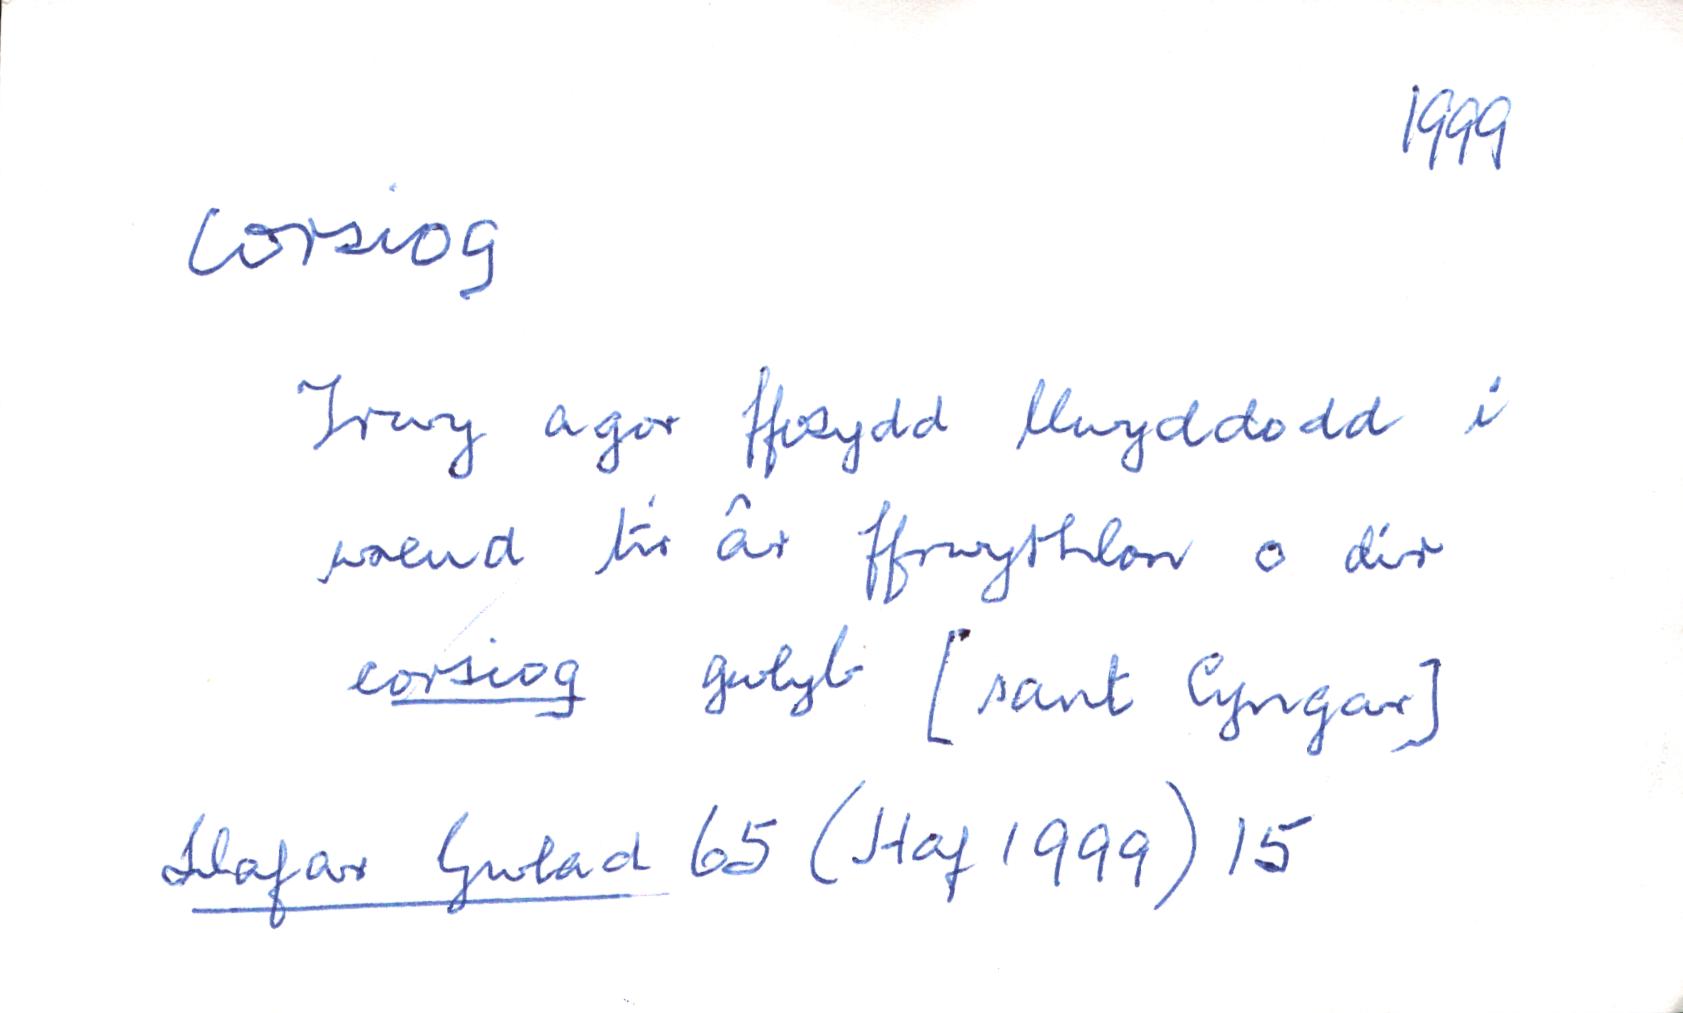 1999
corsiog
Trwy agor ffosydd llwyddodd i
wneud tir âr ffrwythlon o dir
corsiog gwlyb [sant Cyngar]
Llafar Gwlad 65 (Haf 1999) 15